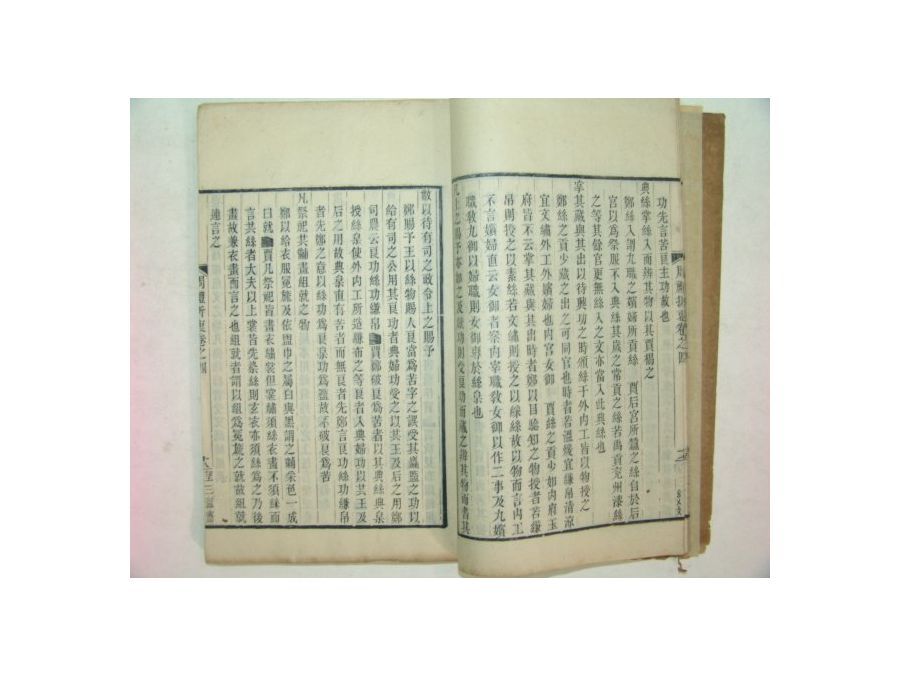 功先言苦良主功故也
典絲掌絲入而辨其物以其賈楬之
鄭絲入謂九職之嬪婦所貢絲 賈后宮所蠶之絲自於后
宮以爲祭服不入典絲其歲之常貢之絲若禹貢兗州漆絲
之等其餘官更無絲入之文亦當入此典絲也
掌其藏與其出以待興功之時頒絲于外內工皆以物授之
鄭絲之貢少藏之出之可同官也時者若溫煖宜縑帛清涼
宜文繡外工外嬪婦也內宮女御 賈絲之貢少如內府玉
府皆不云掌其藏與其出時者鄭以目驗知之物授者若縑
帛則授之以素絲若文繡則授之以綵絲故以物而言內工
不言嬪婦直云女御者案內宰職敎女御以作二事及九嬪
職敎九御以婦職則女御專於絲枲也
上之賜予亦如之及獻功則受良功而藏之辨其物而書其
數以待有司之政令上之賜予
鄭賜予王以絲物賜人良當爲苦字之誤受其麤盬之功以
給有司之公用其良功者典婦功受之以共王及后之用鄭
司農云良功絲功縑帛 賈鄭破良爲苦者以其典絲典枲
授絲枲使外內工所造縑布之等良者入典婦功以共王及
后之用故典枲直有苦者而無良者先鄭言良功絲功縑帛
者先鄭之意以絲功爲良枲功爲麤故不破良爲苦
凡祭祀共黼畫組就之物
鄭以給衣服冕旒及依盥巾之屬白與黑謂之黼采色一成
曰就 賈凡祭祀皆畫衣繡裳但裳繡須絲衣畫不須絲而
言共其絲者大夫以上裳皆先染絲則玄衣亦須絲爲之乃後
畫故兼衣畫而言之也組就者謂以組爲冕旒之就故組就
連言之
周禮折衷卷之四